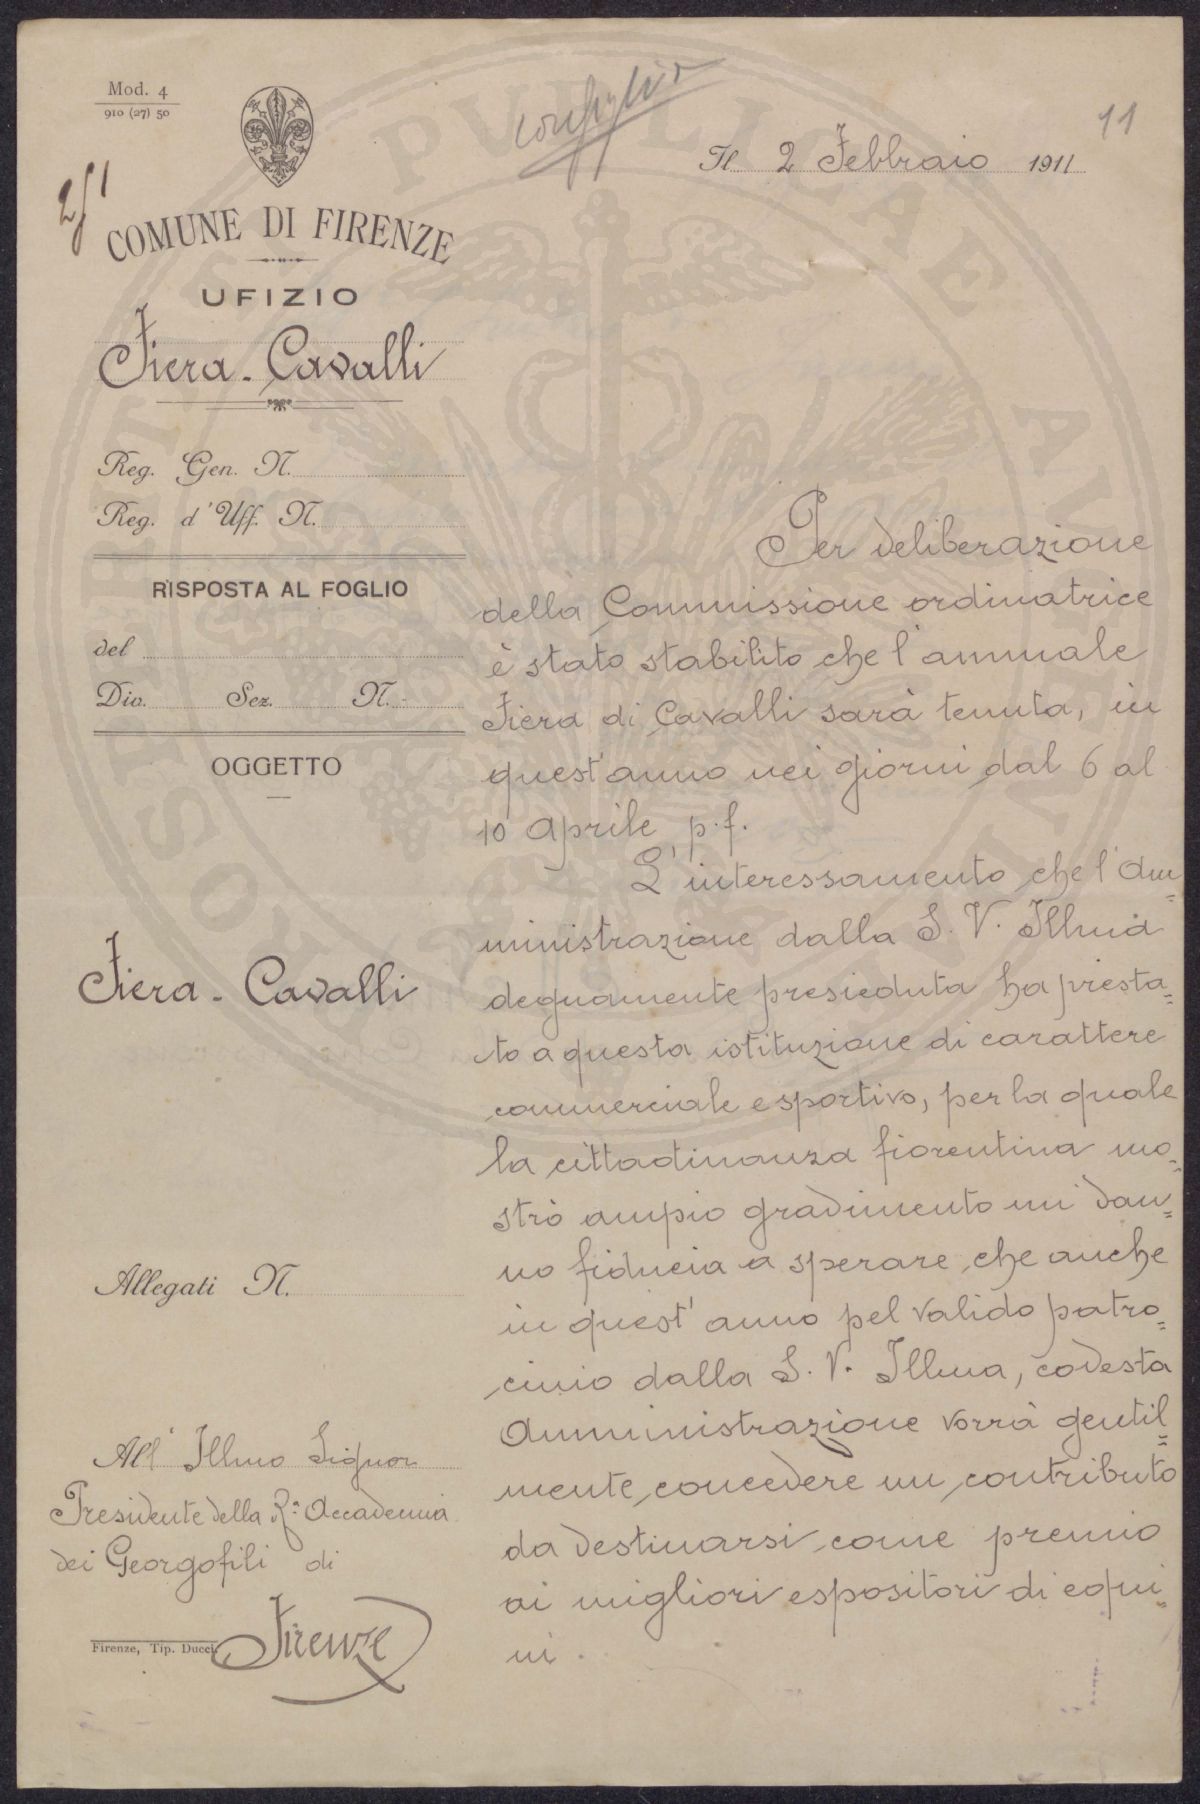 Mod. 4
910 (27) 50
11
Il 2 Febbraio 1911
COMUNE DI FIRENZE
UFIZIO
Fiera - Cavalli
Reg. Gen. N.
Reg. d'Uff. N.
RISPOSTA AL FOGLIO
del
Div. Sez. N.
OGGETTO
Fiera - Cavalli
Allegati N.
All' Illmo Signor
Presidente della R.ª Accademia
dei Georgofili di
Firenze
Firenze, Tip. Ducci.
Per deliberazione
della Commissione ordinatrice
è stato stabilito che l'annuale
Fiera di Cavalli sarà tenuta, in
quest'anno nei giorni dal 6 al
10 Aprile p.f.
L'interessamento che l'Am=
ministrazione dalla S. V. Illma
degnamente presieduta ha presta=
to a questa istituzione di carattere
commerciale e sportivo, per la quale
la cittadinanza fiorentina mo=
strò ampio gradimento mi dan=
no fiducia a sperare che anche
in quest'anno pel valido patro=
cinio dalla S. V. Illma, codesta
Amministrazione vorrà gentil=
mente concedere un contributo
da destinarsi come premio
ai migliori espositori di equi=
ni.